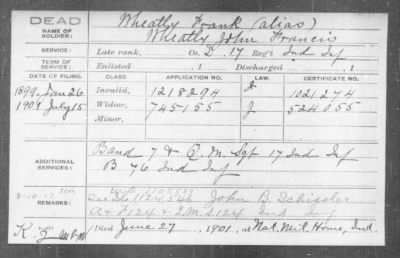 DEAD
NAME OF SOLDIER: Wheatly Frank (alias)
Wheatly John Francis
SERVICE: Late rank, Co. D, 17 Reg't Ind Inf
TERM OF SERVICE: Enlisted , 1 Discharged , 1
DATE OF FILING. CLASS. APPLICATION NO. LAW. CERTIFICATE NO.
1899. Jan 26 Invalid, 1218294 1021274
1901 July 15 Widow, 745155 J 524055
Minor,
ADDITIONAL SERVICES: Band 7 & Q.M. Sgt 17 Ind Inf
B 76 Ind Inf
REMARKS: John B. Schissler
124 124 Ind Inf
Died June 27, 1901, at Nat. Mil. Home, Ind.